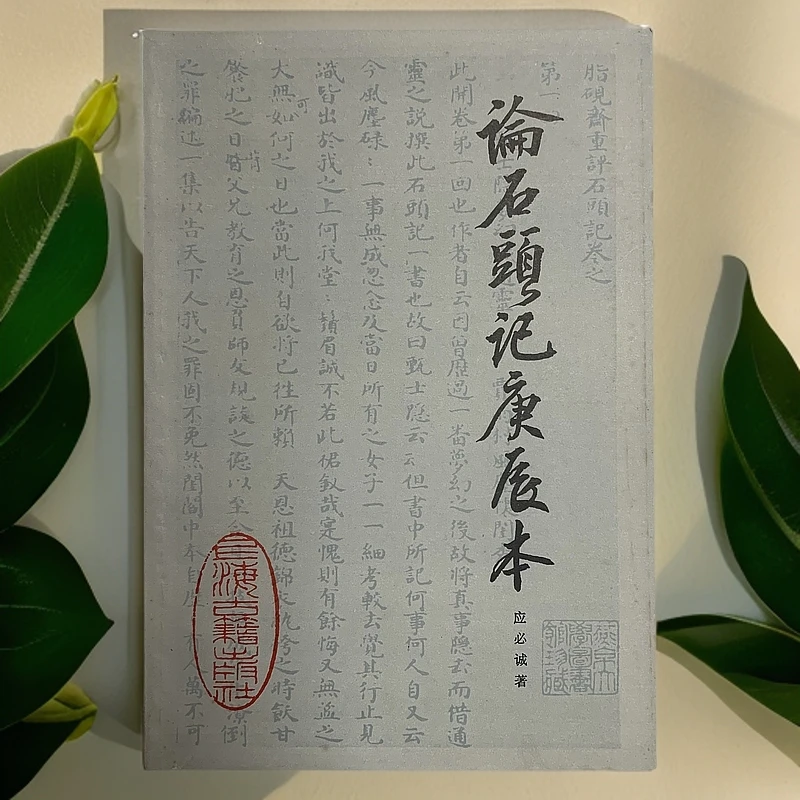 論石頭記庚辰本
应必诚著
脂硯齋重評石頭記卷之
第一
此開卷第一回也作者自云因曾歷過一番夢幻之後故將真事隱去而借通
靈之說撰此石頭記一書也故曰甄士隱云云但書中所記何事何人自又云
今風塵碌：一事無成忽念及當日所有之女子一一細考較去覺其行止見
識皆出於我之上何我堂：鬚眉誠不若此裙釵哉寔愧則有餘悔又無益之
大無可如何之日也當此則自欲將已往所賴 天恩祖德錦衣紈袴之時飫甘
饜肥之日背父兄教育之恩負師友規談之德以至今 倒
之罪編述一集以告天下人我之罪固不免然閨閣中本自歷 有人萬不可
上海古籍出版社
燕京大
學圖書
館珍藏